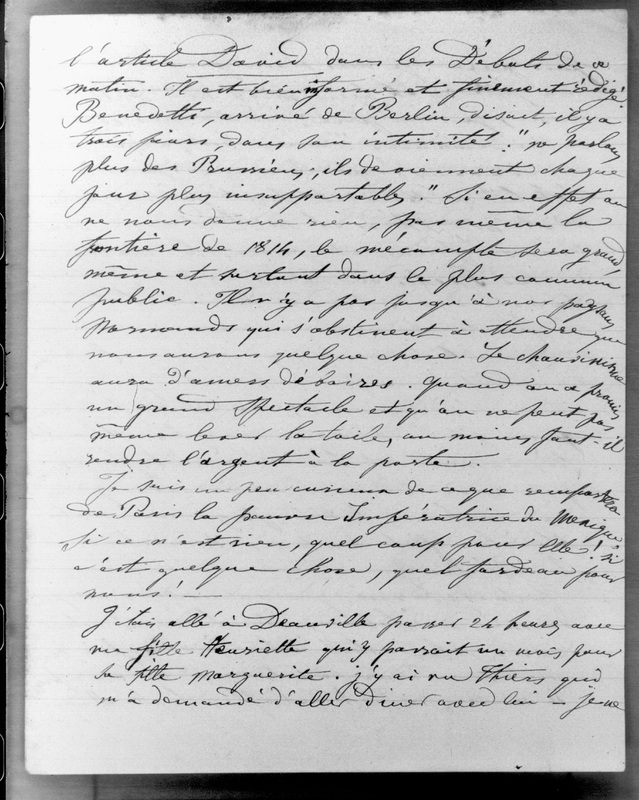 l'article David dans les Débats de ce
matin. Il est bien informé et finement rédigé.
Benedetti, arrivé de Berlin, disait, il y a
trois jours, dans son intimité : "ne parlons
plus des Prussiens, ils deviennent chaque
jour plus insupportables." Si en effet on
ne nous donne rien, pas même la
frontière de 1814, le mécompte sera grand,
même et surtout dans le plus commun
public. Il n'y a pas jusqu'à nos paysans
Normands qui s'obstinent à attendre que
nous aurons quelque chose. Le chauvinisme
aura d'amers déboires. Quand on a promis
un grand spectacle et qu'on ne peut pas
même lever la toile, au moins faut-il
rendre l'argent à la porte.
Je suis un peu curieux de ce que remportera
de Paris la pauvre Impératrice du Mexique.
Si ce n'est rien, quel coup pour elle ! Si
c'est quelque chose, quel fardeau pour
nous ! —
J'étais allé à Deauville passer 24 heures avec
ma fille Henriette qui y passait un mois pour
sa fille Marguerite. J'y ai vu Thiers qui
m'a demandé d'aller diner avec lui — je ne